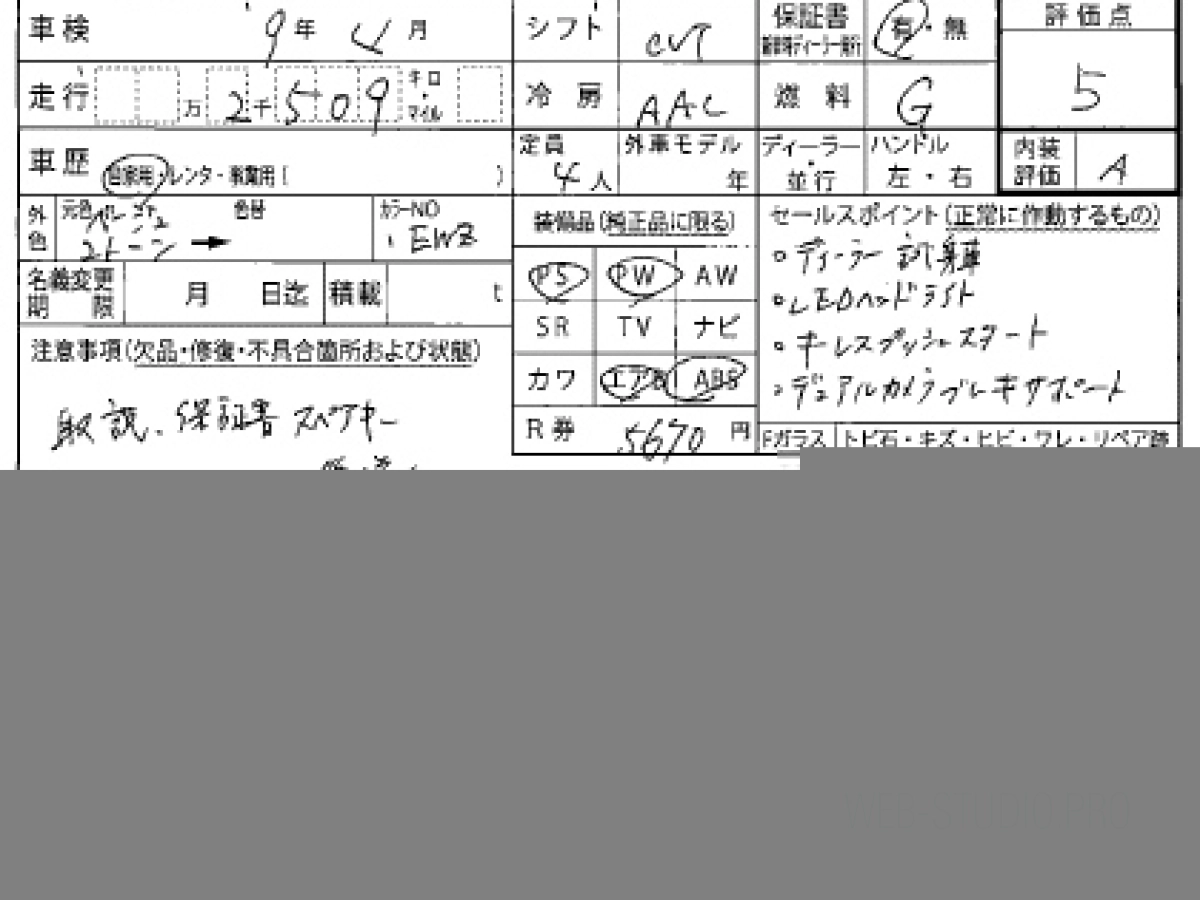 車検 9年 4月 シフト CVT 保証書 新車時ディーラー発行 有・無 評価点
走行 万 2千 509 キロ・マイル 冷房 AAC 燃料 G 5
車歴 自家用・レンタ・事業用( ) 定員 4人 外車モデル 年 ディーラー・並行 ハンドル 左・右 内装評価 A
外色 元色 パール 2トーン → 色替 カラーNO EWZ
装備品(純正品に限る)
セールスポイント(正常に作動するもの)
PS PW AW
SR TV ナビ
カワ エアB ABS
R券 5670円
。ディーラー試乗車
。LEDヘッドライト
。キーレスプッシュスタート
。デュアルカメラブレーキサポート
名義変更期限 月 日迄 積載 t
注意事項(欠品・修復・不具合箇所および状態)
取説、保証書 スペアキー
Fガラス トビ石・キズ・ヒビ・ワレ・リペア跡